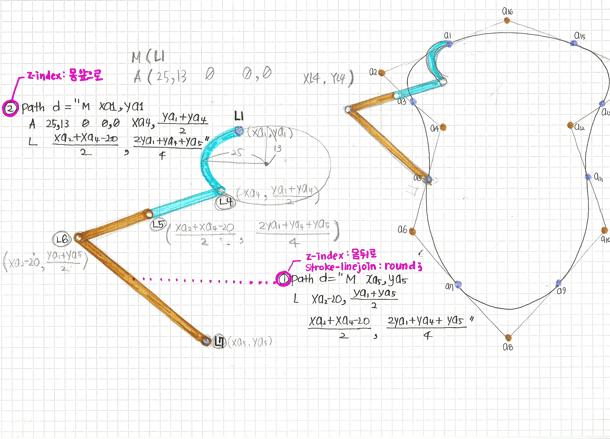 M(L1
A(25,13 0 0,0 X14, Y14)
z-index: 몸앞으로
② path d="M xa1, ya1
A 25,13 0 0,0 xa4, (ya1+ya4)/2
L (xa2+xa4-20)/2 , (2ya1+ya4+ya5)/4"
L1
(xa1, ya1)
25
13
L4
(xa4, (ya1+ya4)/2)
L5
((xa2+xa4-20)/2 , (2ya1+ya4+ya5)/4)
L6
(xa2-20, (ya1+ya5)/2)
L7
(xa5, ya5)
z-index: 몸뒤로
stroke-linejoin: round
① path d="M xa5, ya5
L xa2-20, (ya1+ya5)/2
(xa2+xa4-20)/2 , (2ya1+ya4+ya5)/4"
a16
a1
a15
a2
a3
a4
a12
a11
a6
a10
a7
a9
a8